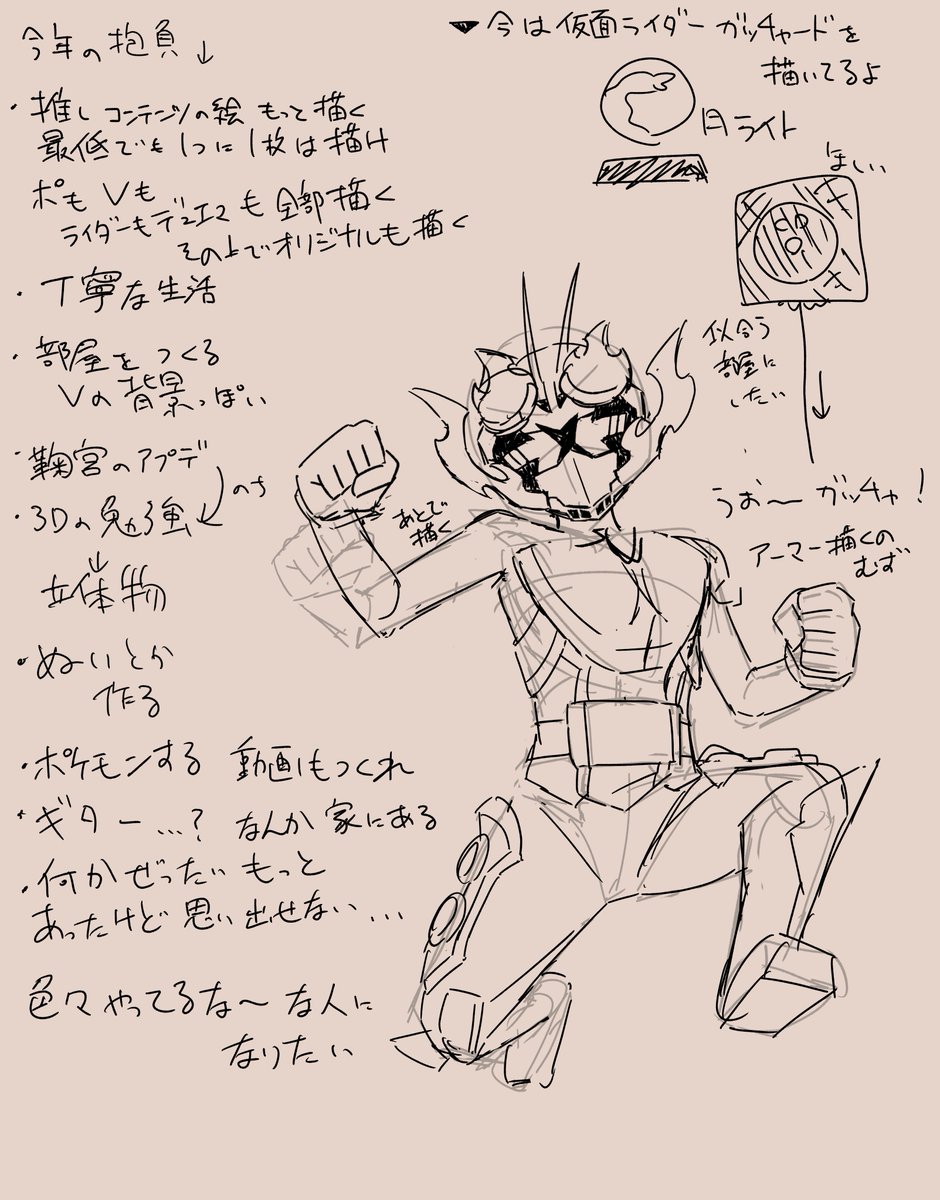 今年の抱負↓
・推しコンテンツの絵 もっと描く
最低でも1つに1枚は描け
ポも Vも
ライダーもデュエマも全部描く
その上でオリジナルも描く
・丁寧な生活
・部屋をつくる
Vの背景っぽい
・鞠宮のアプデ
・3Dの勉強
のち
↓
立体物
・ぬいとか
作る
・ポケモンする 動画もつくれ
・ギター…? なんか家にある
・何かぜったい もっと
あったけど思い出せない…
色々やってるな〜な人に
なりたい
▼今は仮面ライダーガッチャードを
描いてるよ
月ライト
ほしい
CD
似合う
部屋に
したい
あとで
描く
うお〜ガッチャ!
アーマー描くの
むず